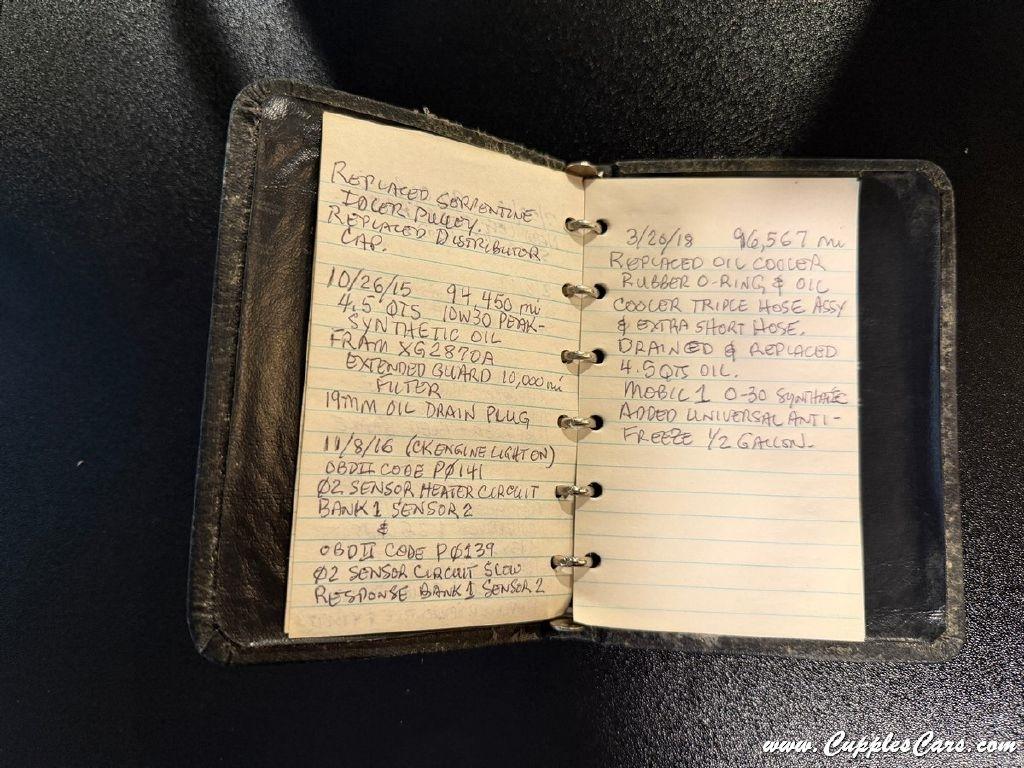 REPLACED SERPENTINE
IDLER PULLEY.
REPLACED DISTRIBUTOR
CAP.
10/26/15 94,450 mi
4.5 QTS 10W30 PEAK-
SYNTHETIC OIL
FRAM XG2870A
EXTENDED GUARD 10,000 mi
FILTER
19MM OIL DRAIN PLUG
11/8/16 (CK ENGINE LIGHT ON)
OBDII CODE PØ141
Ø2 SENSOR HEATER CIRCUIT
BANK 1 SENSOR 2
&
OBDII CODE PØ139
Ø2 SENSOR CIRCUIT SLOW
RESPONSE BANK 1 SENSOR 2
3/26/18 96,567 mi
REPLACED OIL COOLER
RUBBER O-RING & OIL
COOLER TRIPLE HOSE ASSY
& EXTRA SHORT HOSE.
DRAINED & REPLACED
4.5 QTS OIL.
MOBIL 1 0-30 SYNTHETIC
ADDED UNIVERSAL ANTI-
FREEZE 1/2 GALLON.
www.CupplesCars.com